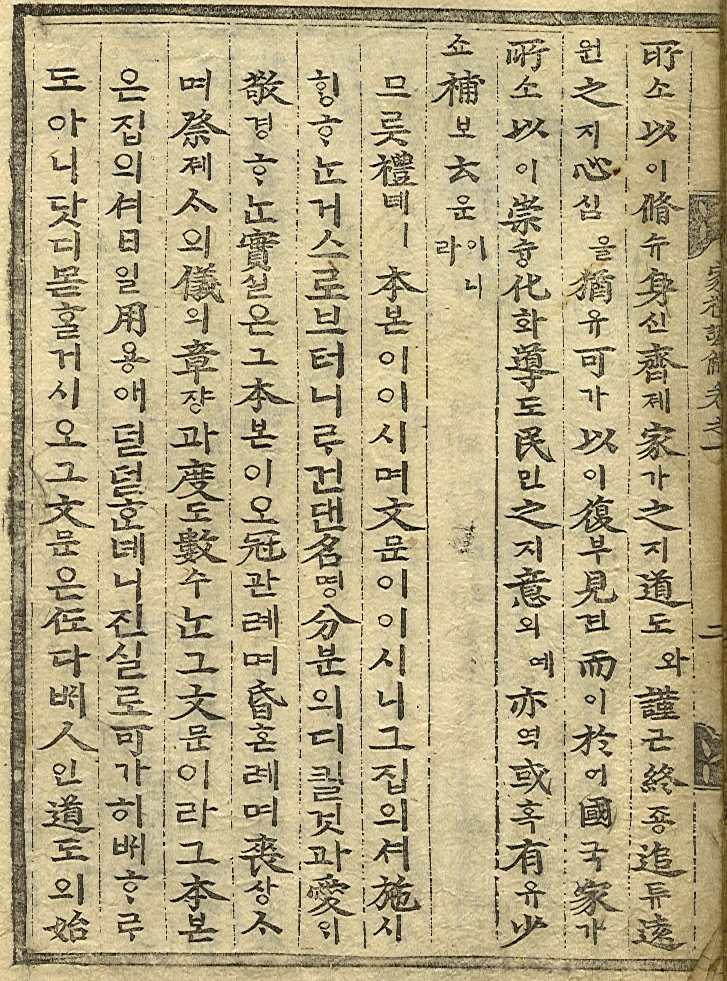 所소以이脩슈身신齊졔家가之지道도와謹근終죵追튜遠
원之지心심을猶유可가以이復부見견而이於어國국家가
所소以이崇슝化화導도民민之지意의예亦역或혹有유少
쇼補보云운이니라
므릇禮톄ㅣ本본이이시며文문이이시니그집의셔施시
ᄒᆡᆼᄒᆞᄂᆞᆫ거스로브터니ᄅᆞ건댄名명分분의디킬것과愛ᄋᆡ
敬경ᄒᆞᄂᆞᆫ實실은그本본이오冠관례며昏혼례며喪상ᄉᆞ
며祭졔ᄉᆞ의儀의章쟝과度도數수ᄂᆞᆫ그文문이라그本본
은집의셔日일用용애덛덛ᄒᆞᆫ톄니진실로可가히ᄡᅥᄒᆞᄅᆞ
도아니닷디몯ᄒᆞᆯ거시오그文문은ᄯᅩ다ᄡᅥ人인道도의始
家禮諺解卷之一
二